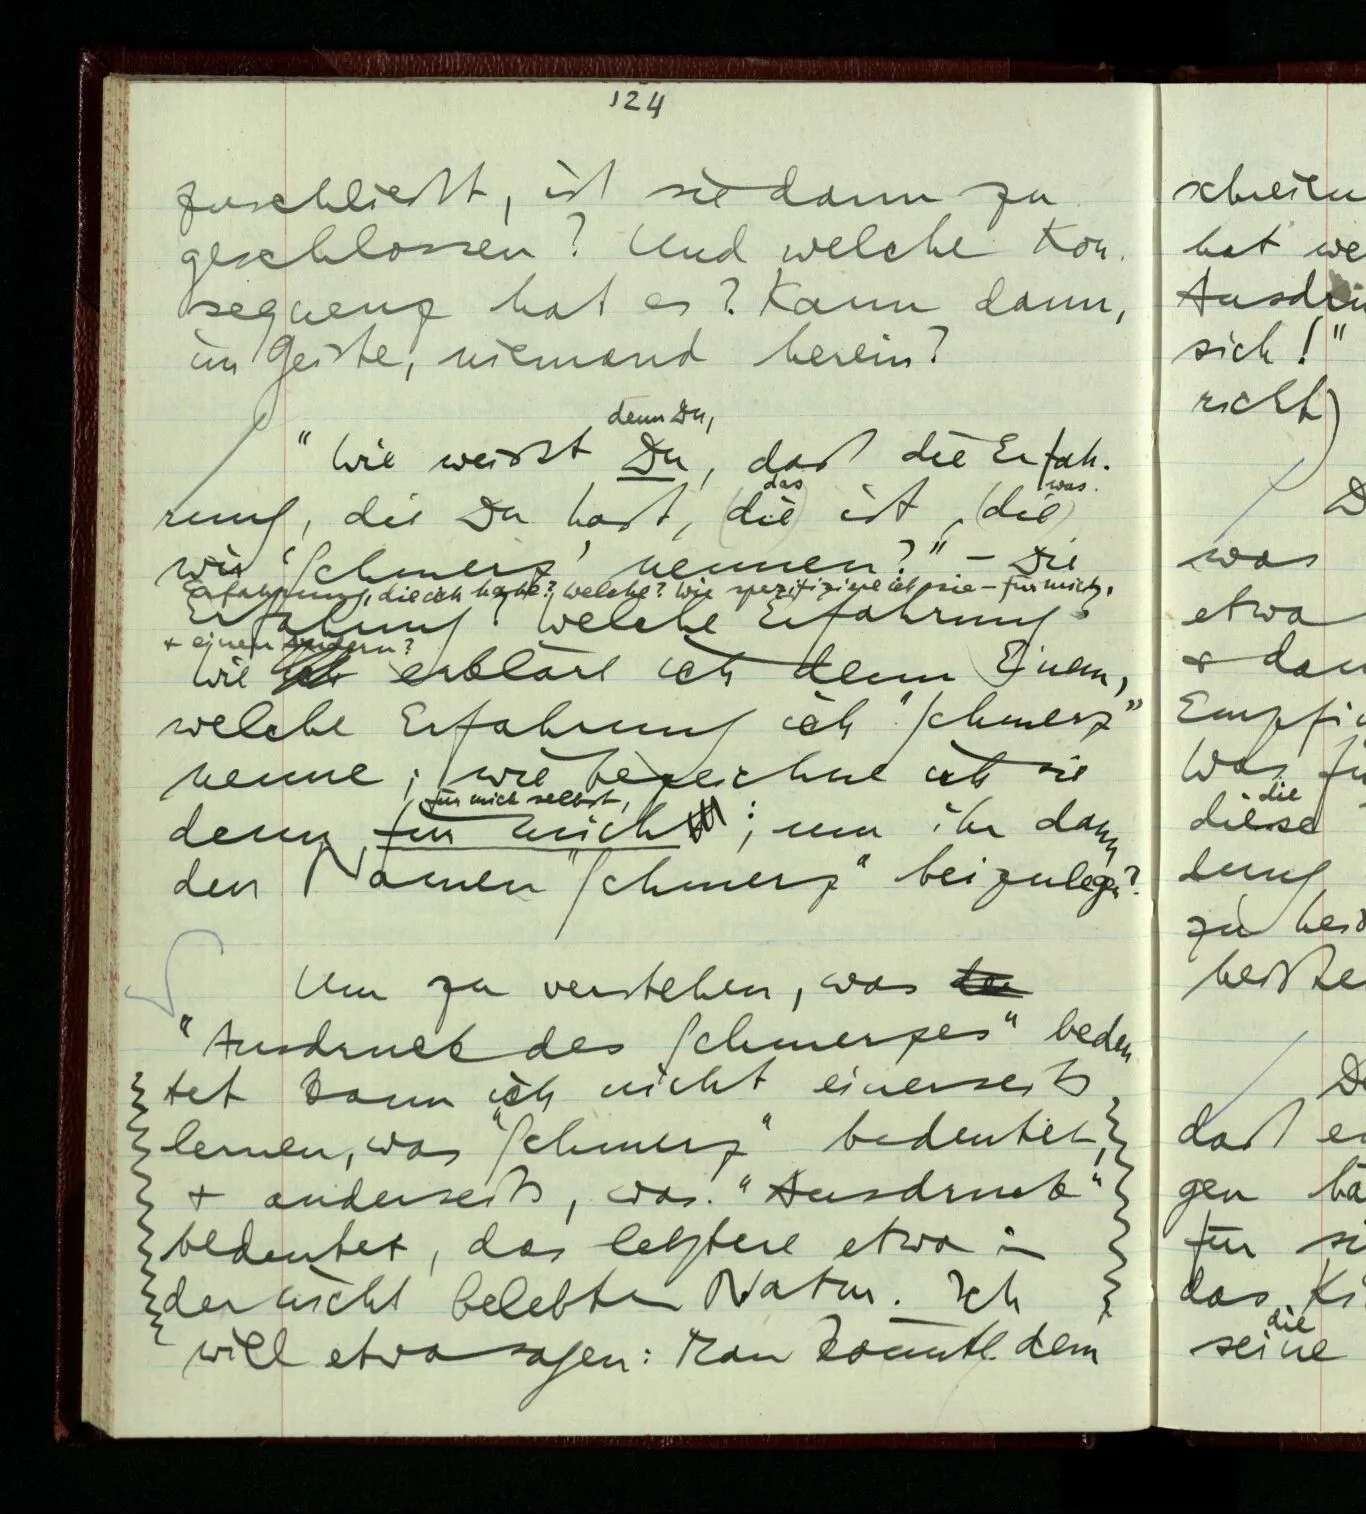 124
zuschließt, ist sie dann zu
geschlossen? Und welche Kon-
sequenz hat es? Kann dann,
im Geiste, niemand herein?
denn Du,
"Wie weißt Du, daß die Erfah-
das was
rung, die Du hast, (die) ist, (die)
wir 'Schmerz' nennen?" – Die
Erfahrung, die ich habe? welche? Wie spezifiziere ich sie – für mich,
Erfahrung? Welche Erfahrung?
+ einen andern?
Wie ich erkläre ich denn Einem,
welche Erfahrung ich "Schmerz"
nenne; wie bezeichne ich sie
für mich selbst,
denn für mich; um ihr dann
den Namen "Schmerz" beizulegen?
Um zu verstehen, was
"Ausdruck des Schmerzes" bedeu
tet kann ich nicht einerseits
lernen, was "Schmerz" bedeutet,
+ anderseits, was "Ausdruck"
bedeutet, das letztere etwa in
der nicht belebten Natur. Ich
will etwa sagen: Man könnte dem
schein
hat we
Ausdru
sich!"
nicht)
D
was
etwa
+ dan
Empfi
Was fü
die
diese
dung
zu heiß
heißt
D
daß
gen
für si
das Ki
die
seine